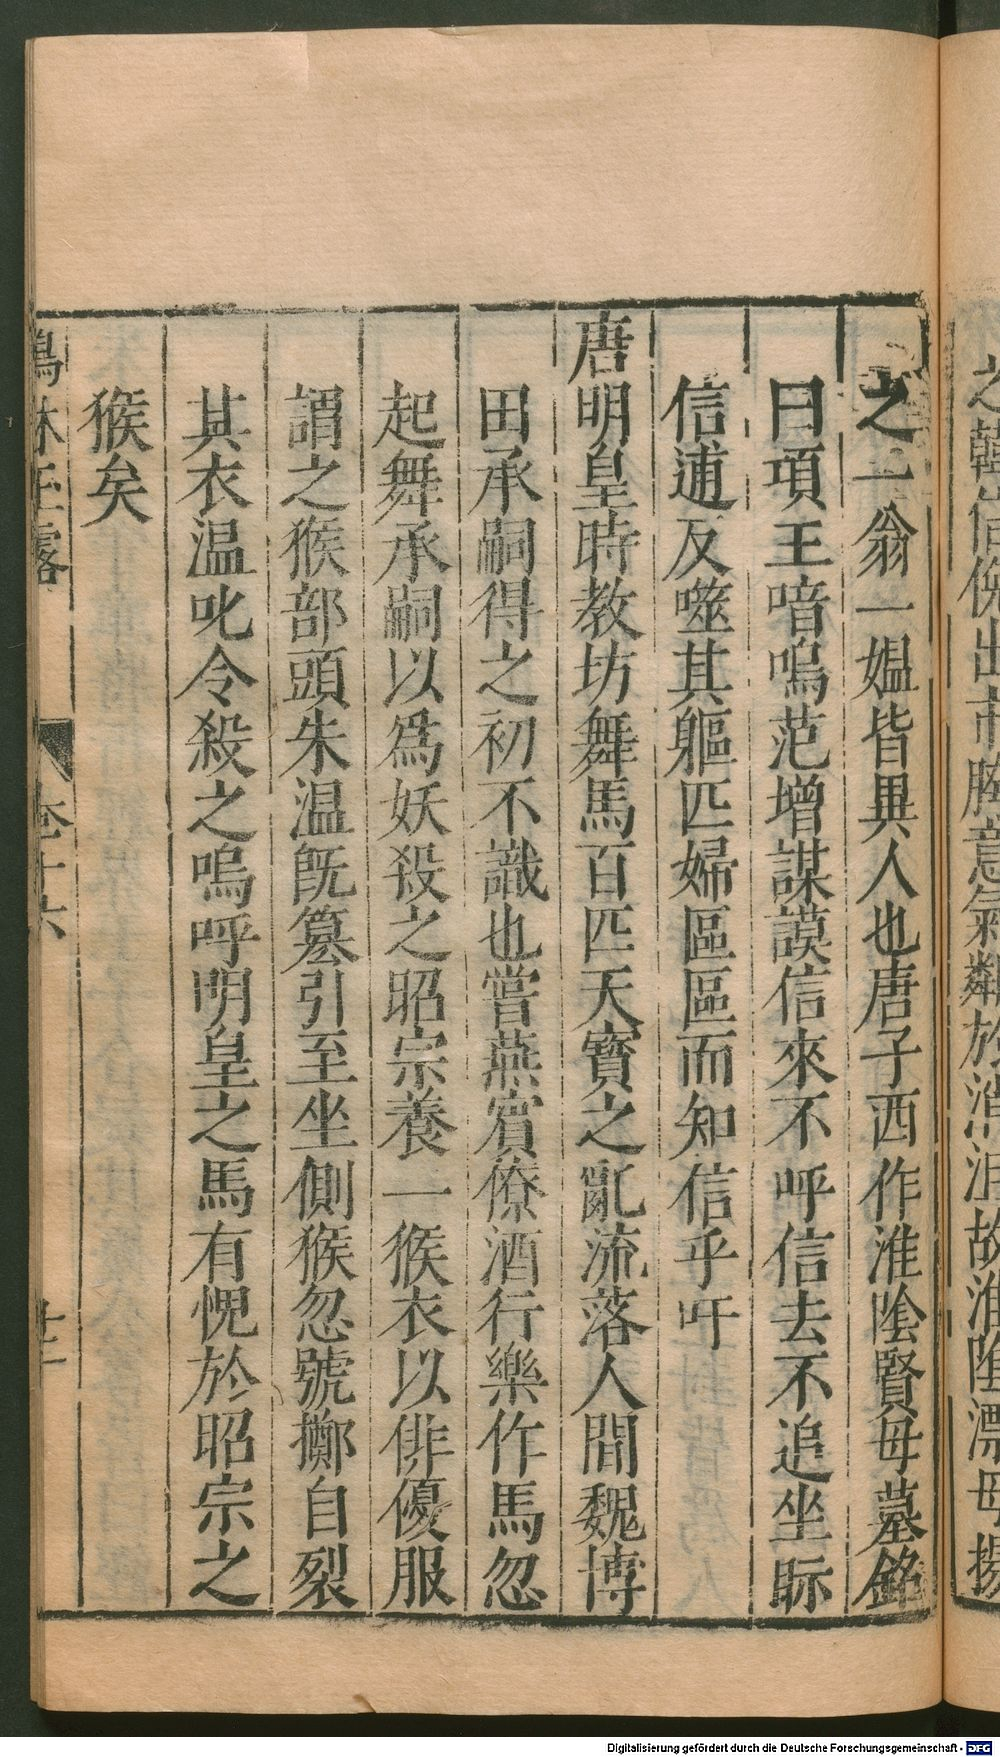 之一翁一媼皆異人也唐子西作淮陰賢母墓銘
曰項王喑嗚范增謀謨信來不呼信去不追坐眎
信逋反噬其軀匹婦區區而知信乎吁
唐明皇時教坊舞馬百匹天寶之亂流落人間魏博
田承嗣得之初不識也嘗燕賓僚酒行樂作馬忽
起舞承嗣以爲妖殺之昭宗養一猴衣以俳優服
謂之猴部頭朱温旣簒引至坐側猴忽號擲自裂
其衣温叱令殺之嗚呼明皇之馬有愧於昭宗之
猴矣
林玉露
卷十六
十二
之韓信俛出市胯意氣鄰於消沮故淮陰漂母揚
Digitalisierung gefördert durch die Deutsche Forschungsgemeinschaft - DFG